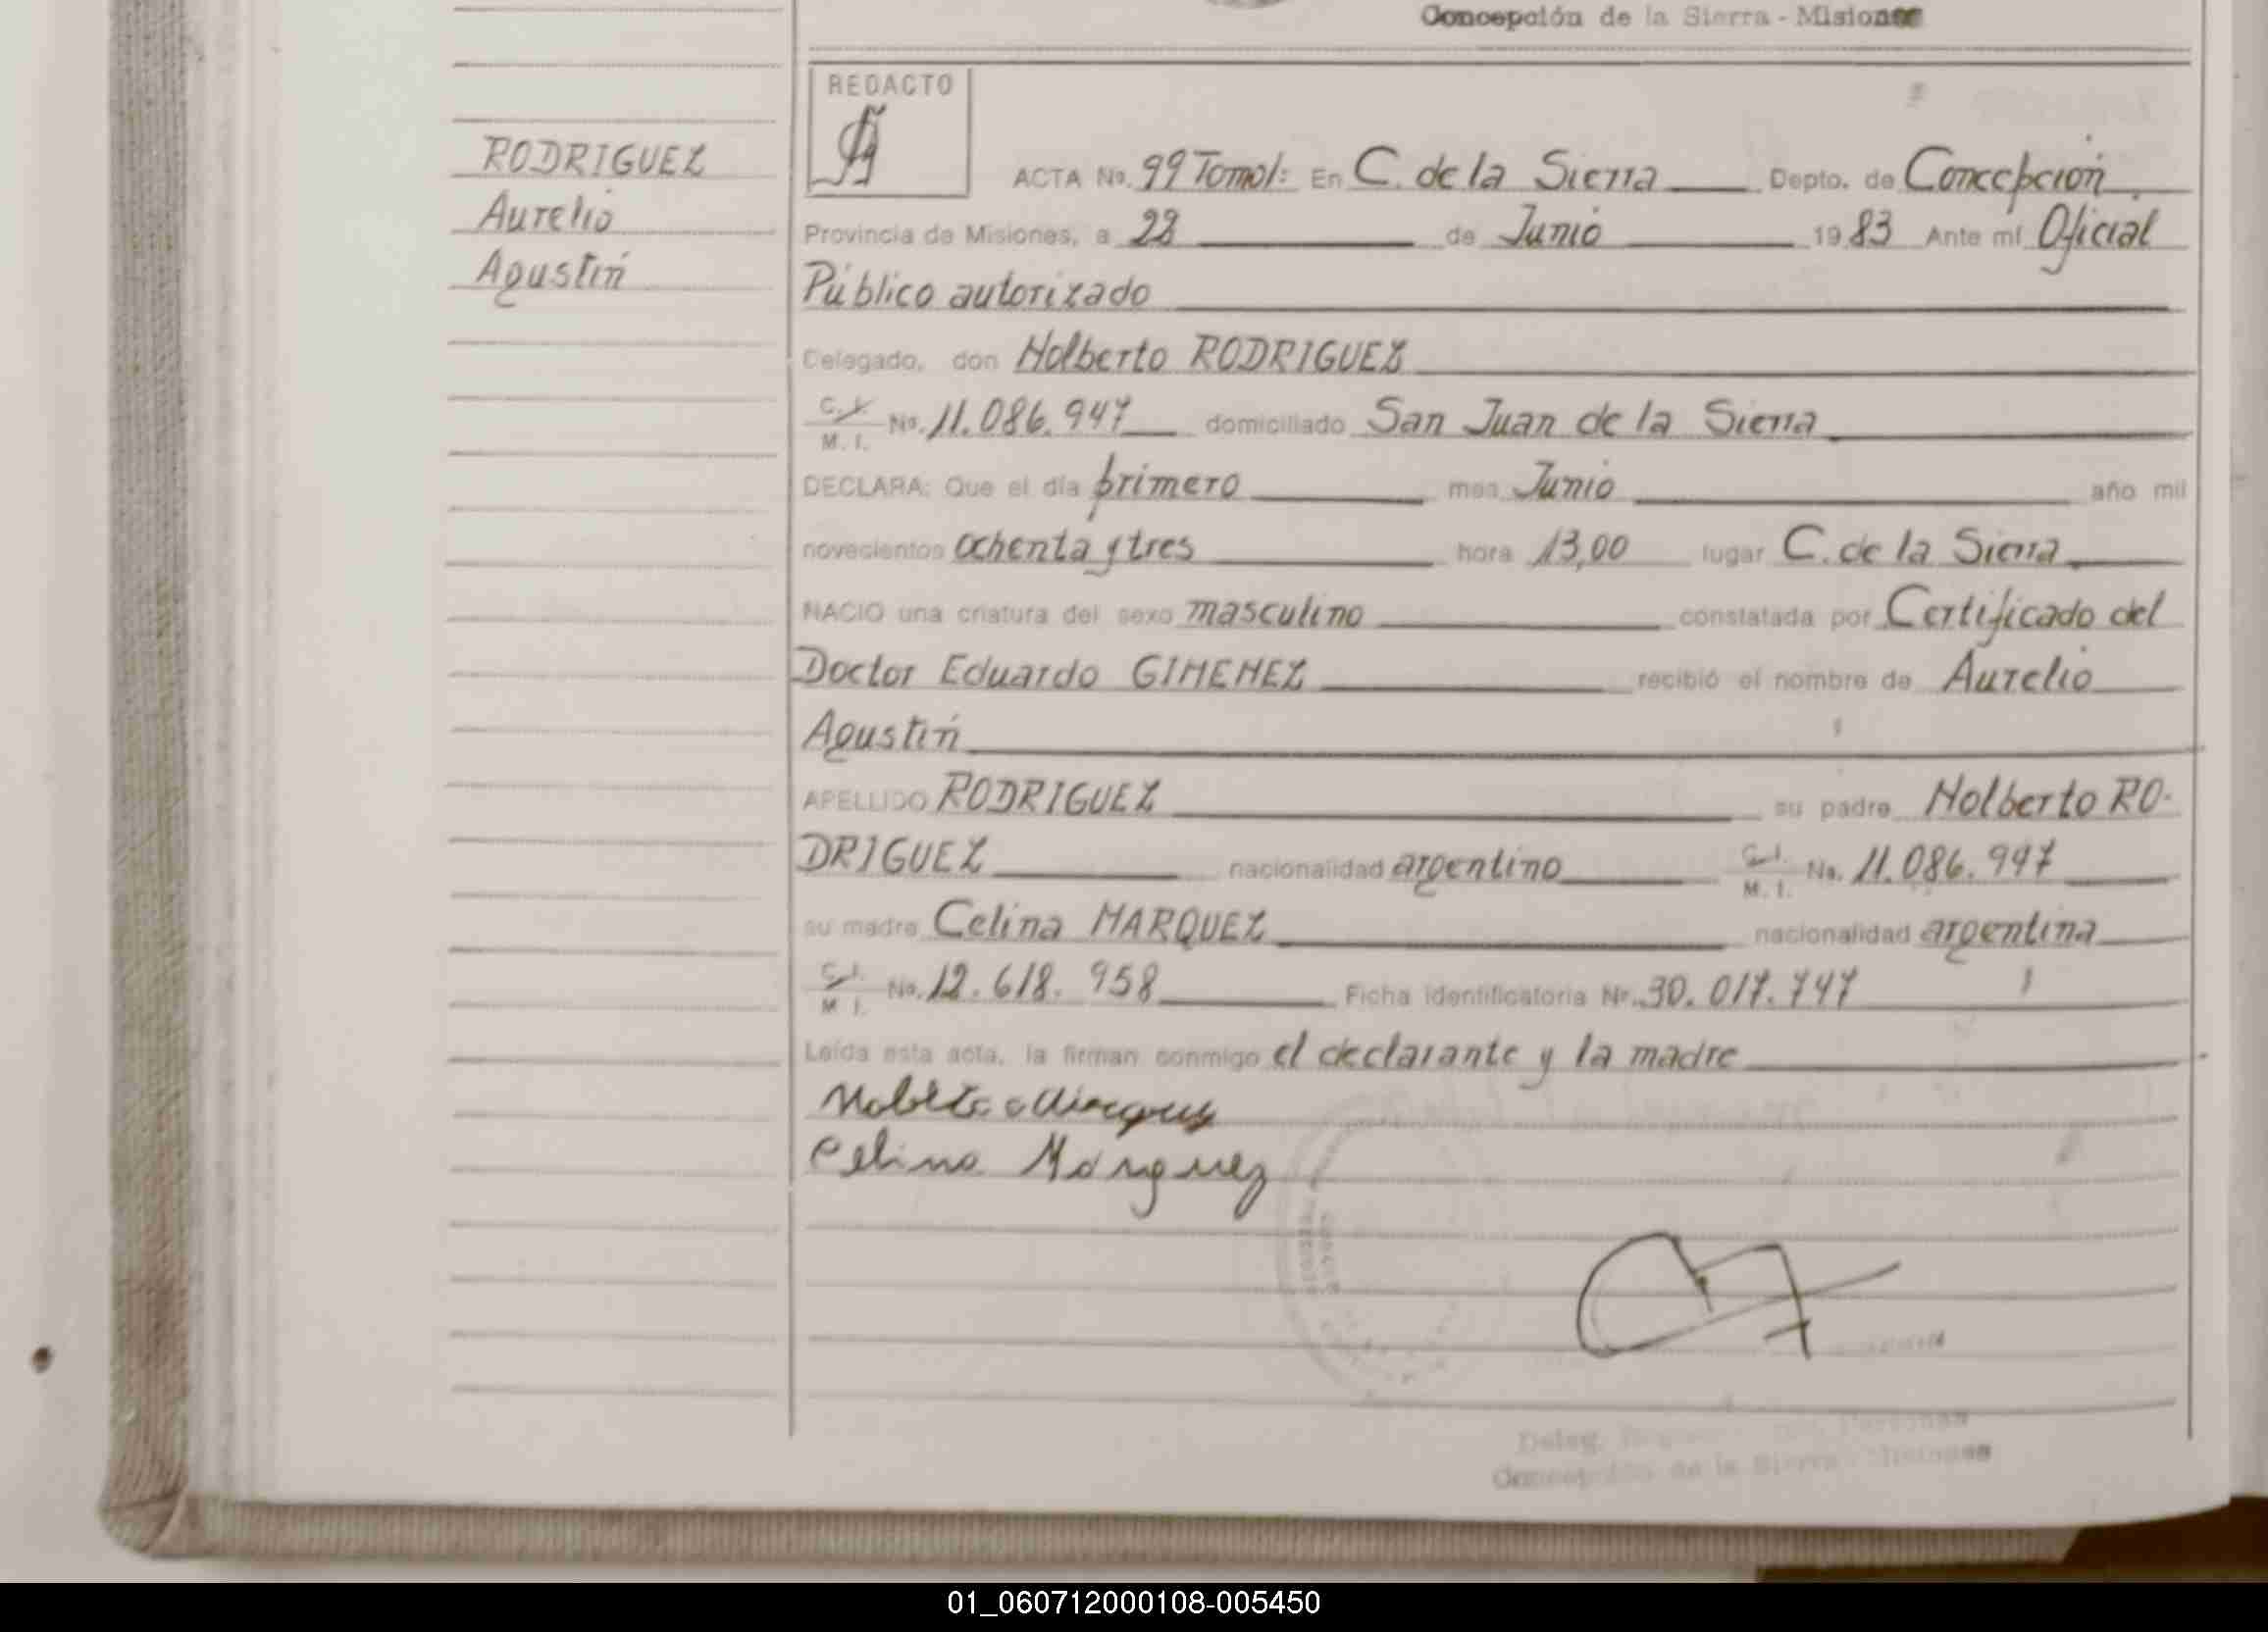 Concepción de la Sierra - Misiones
REDACTO
RODRIGUEZ
Aurelio
Agustín
ACTA No. 99 Tomo I: En C. de la Sierra Depto. de Concepción
Provincia de Misiones, a 28 de Junio 1983 Ante mí Oficial
Público autorizado
Delegado, don Nolberto RODRIGUEZ
C.I. M. I. No. 11.086.947 domiciliado San Juan de la Sierra
DECLARA: Que el día primero mes Junio año mil
novecientos ochenta y tres hora 13,00 lugar C. de la Sierra
NACIO una criatura del sexo masculino constatada por Certificado del
Doctor Eduardo GIMENEZ recibió el nombre de Aurelio
Agustín
APELLIDO RODRIGUEZ su padre Nolberto RO-
DRIGUEZ nacionalidad argentino C.I. M. I. No. 11.086.947
su madre Celina MARQUEZ nacionalidad argentina
C.I. M I. No. 12.618.958 Ficha identificatoria Nr. 30.017.747
Leída esta acta, la firman conmigo el declarante y la madre
Celina Márquez
Deleg. Personas
Concepción de la Sierra - Misiones
01_060712000108-005450